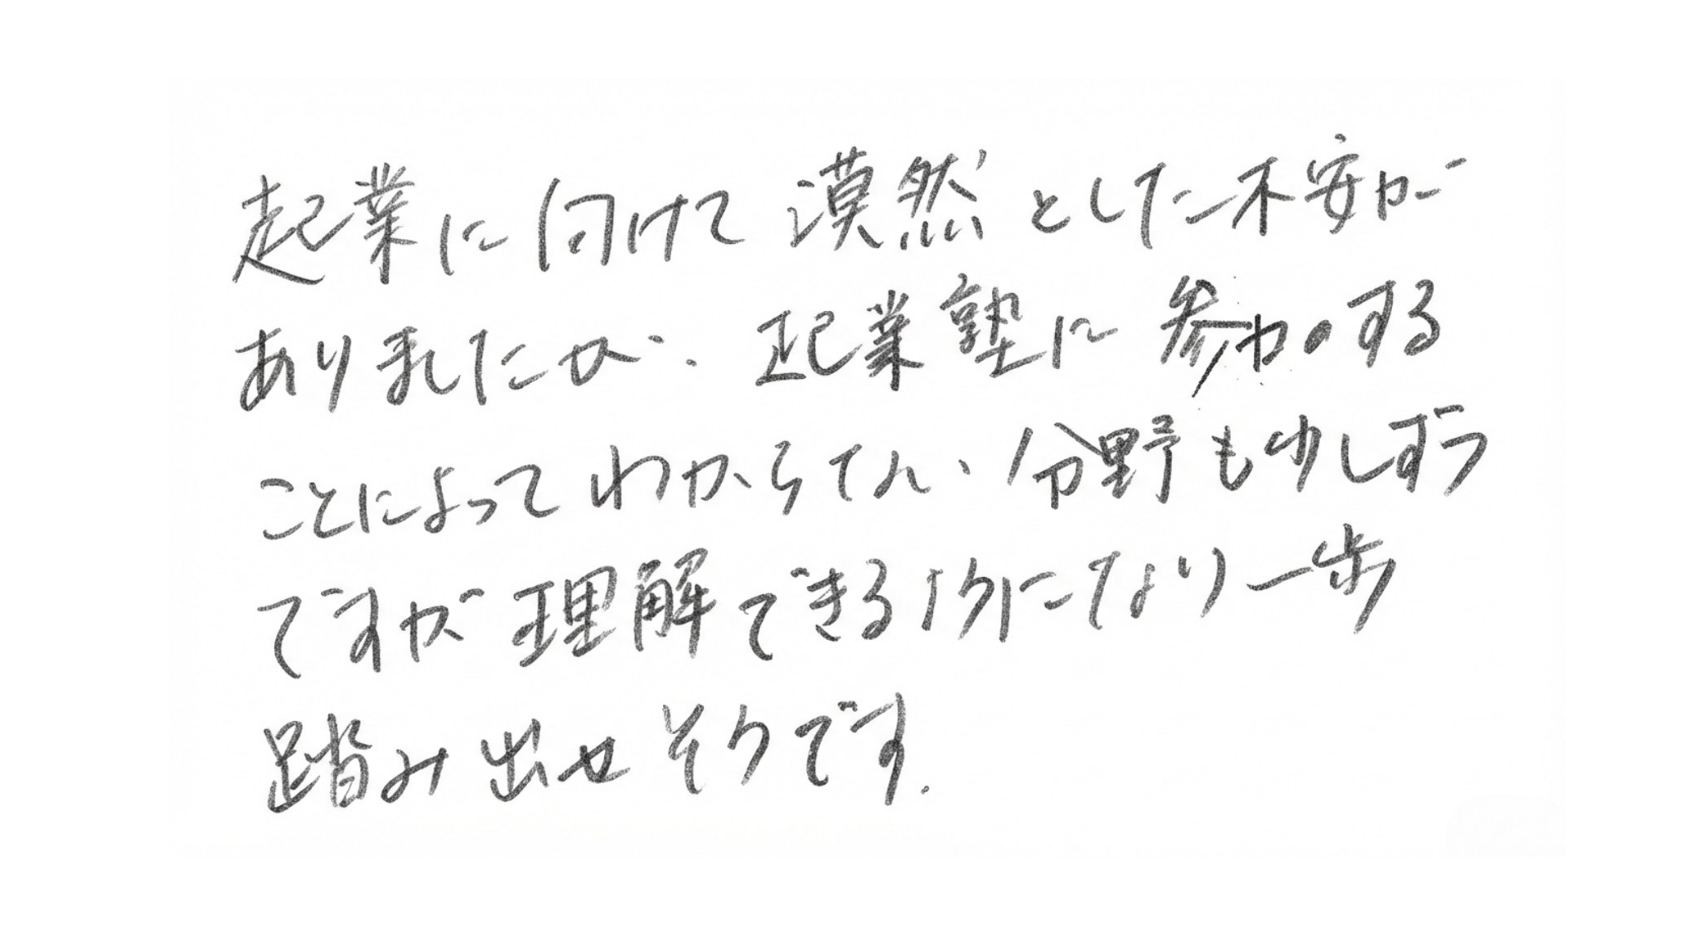 起業に向けて漠然とした不安が
ありましたが、起業塾に参加する
ことによってわからない、分野も少しずつ
ですが理解できるようになり一歩
踏み出せそうです.